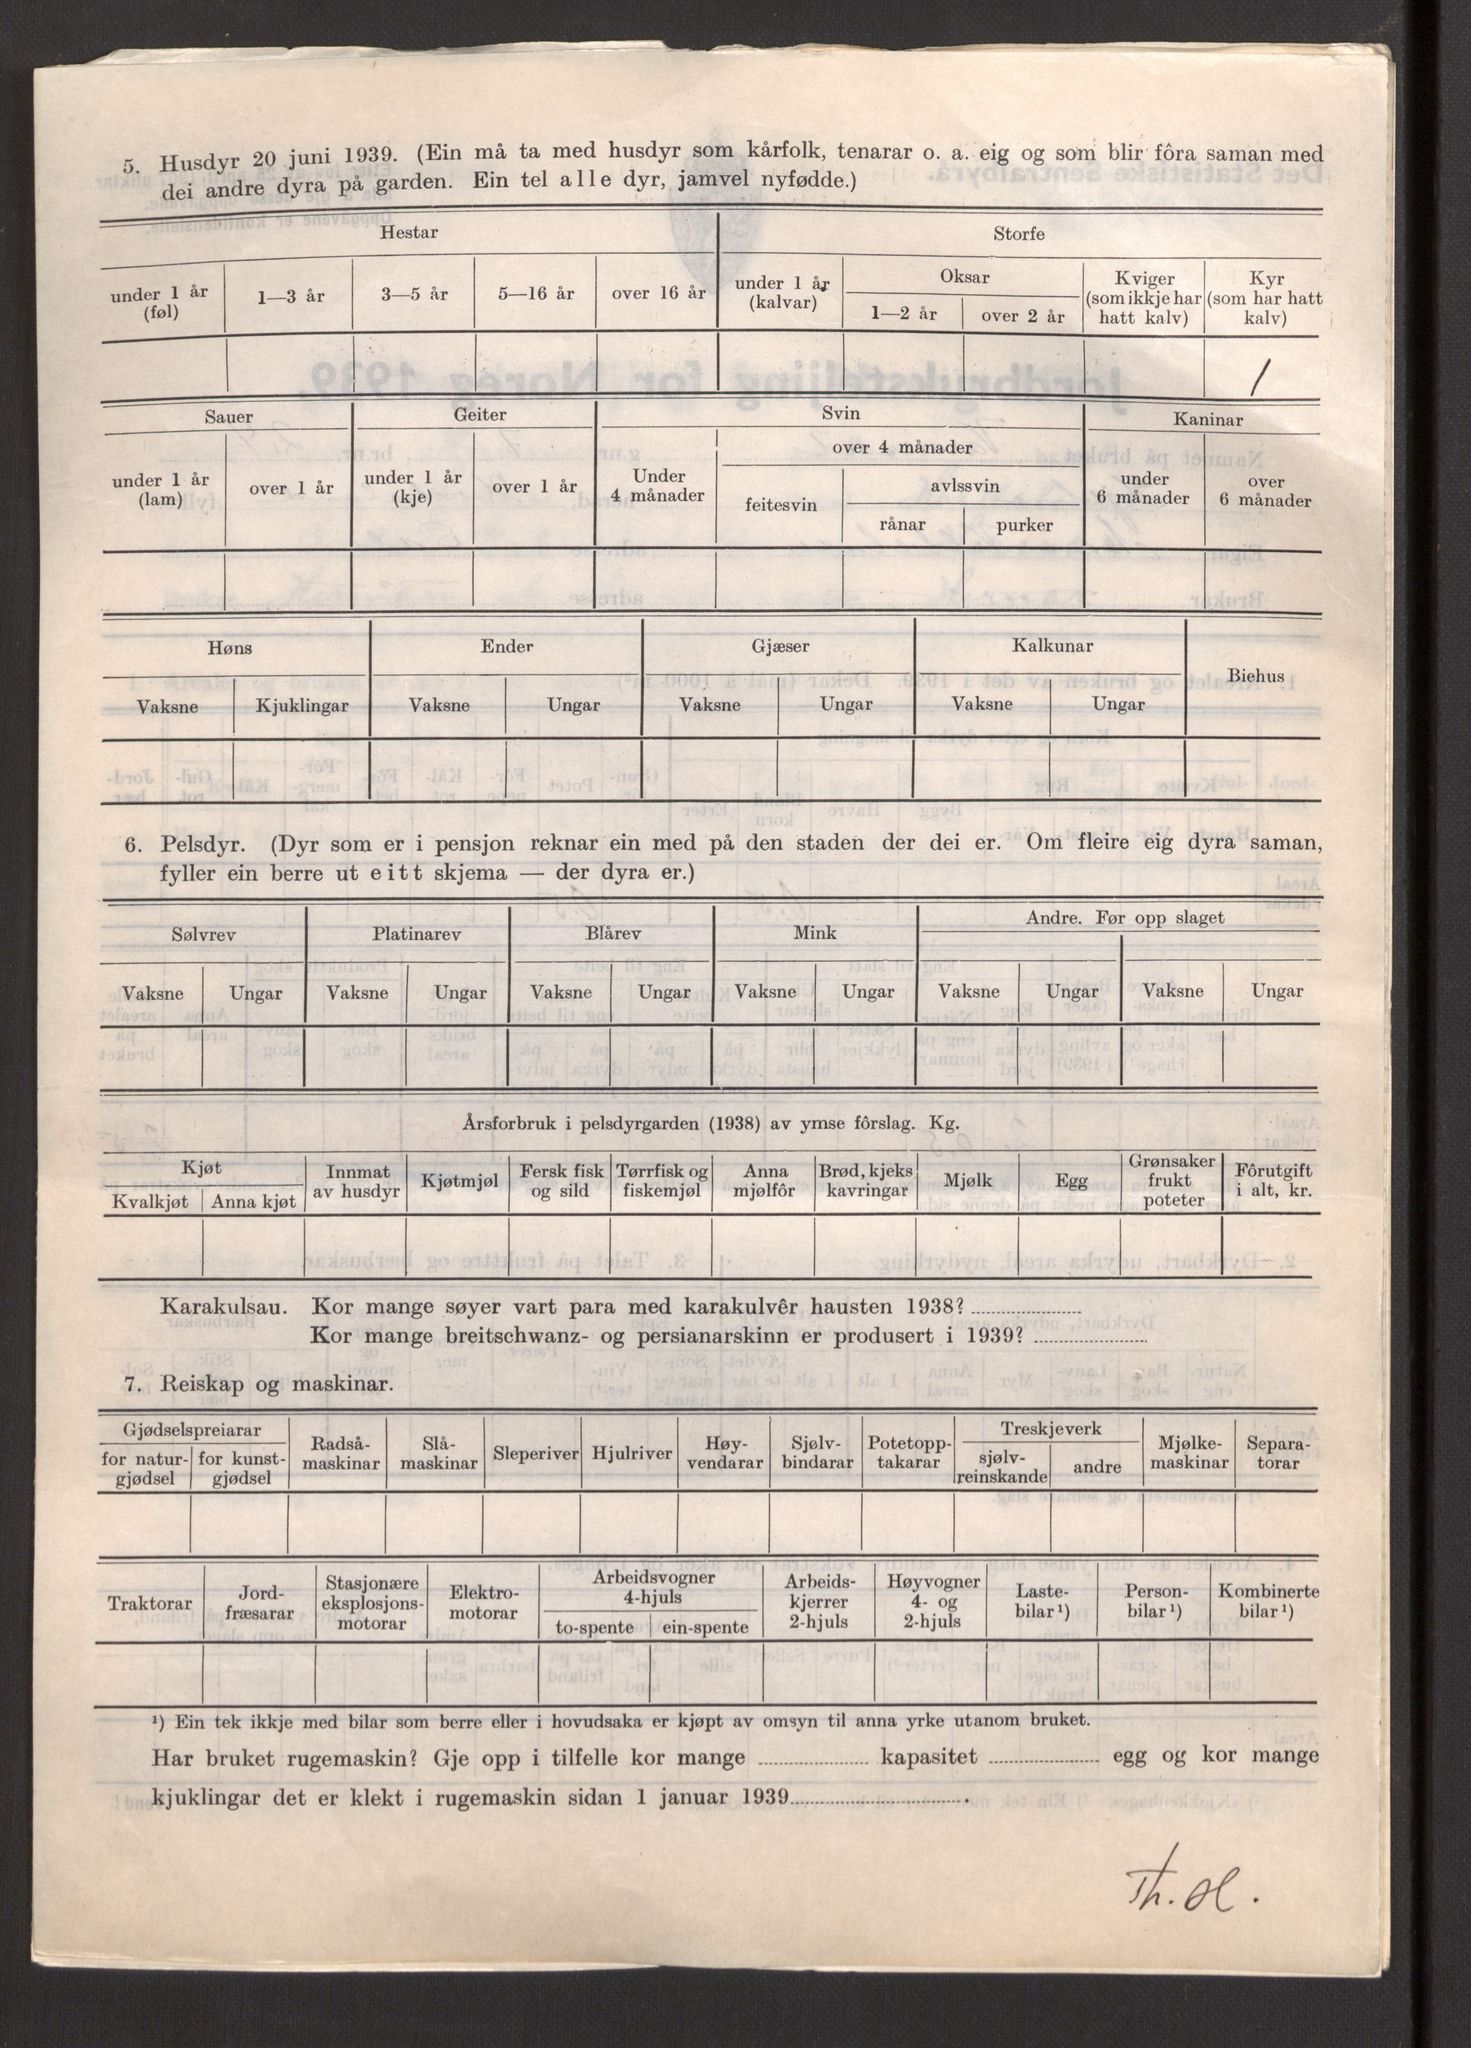 5. Husdyr 20 juni 1939. (Ein må ta med husdyr som kårfolk, tenarar o. a. eig og som blir fôra saman med
dei andre dyra på garden. Ein tel alle dyr, jamvel nyfødde.)
Hestar Storfe
under 1 år (føl) 1—3 år 3—5 år 5—16 år over 16 år under 1 år (kalvar) Oksar 1—2 år over 2 år Kviger (som ikkje har hatt kalv) Kyr (som har hatt kalv)
1
Sauer Geiter Svin Kaninar
under 1 år (lam) over 1 år under 1 år (kje) over 1 år Under 4 månader over 4 månader feitesvin avlssvin rånar purker under 6 månader over 6 månader
Høns Ender Gjæser Kalkunar Biehus
Vaksne Kjuklingar Vaksne Ungar Vaksne Ungar Vaksne Ungar
6. Pelsdyr. (Dyr som er i pensjon reknar ein med på den staden der dei er. Om fleire eig dyra saman,
fyller ein berre ut eitt skjema — der dyra er.)
Sølvrev Platinarev Blårev Mink Andre. Før opp slaget
Vaksne Ungar Vaksne Ungar Vaksne Ungar Vaksne Ungar Vaksne Ungar Vaksne Ungar
Årsforbruk i pelsdyrgarden (1938) av ymse fôrslag. Kg.
Kjøt Kvalkjøt Anna kjøt Innmat av husdyr Kjøtmjøl Fersk fisk og sild Tørrfisk og fiskemjøl Anna mjølfôr Brød, kjeks kavringar Mjølk Egg Grønsaker frukt poteter Fôrutgift i alt, kr.
Karakulsau. Kor mange søyer vart para med karakulvêr hausten 1938?
Kor mange breitschwanz- og persianarskinn er produsert i 1939?
7. Reiskap og maskinar.
Gjødselspreiarar for natur-gjødsel for kunst-gjødsel Radså-maskinar Slå-maskinar Sleperiver Hjulriver Høy-vendarar Sjølv-bindarar Potetopp-takarar Treskjeverk sjølv-reinskande andre Mjølke-maskinar Separa-torar
Traktorar Jord-fræsarar Stasjonære eksplosjons-motorar Elektro-motorar Arbeidsvogner 4-hjuls to-spente ein-spente Arbeids-kjerrer 2-hjuls Høyvogner 4- og 2-hjuls Laste-bilar ¹) Person-bilar ¹) Kombinerte bilar ¹)
¹) Ein tek ikkje med bilar som berre eller i hovudsaka er kjøpt av omsyn til anna yrke utanom bruket.
Har bruket rugemaskin? Gje opp i tilfelle kor mange kapasitet egg og kor mange
kjuklingar det er klekt i rugemaskin sidan 1 januar 1939.
Th. H.